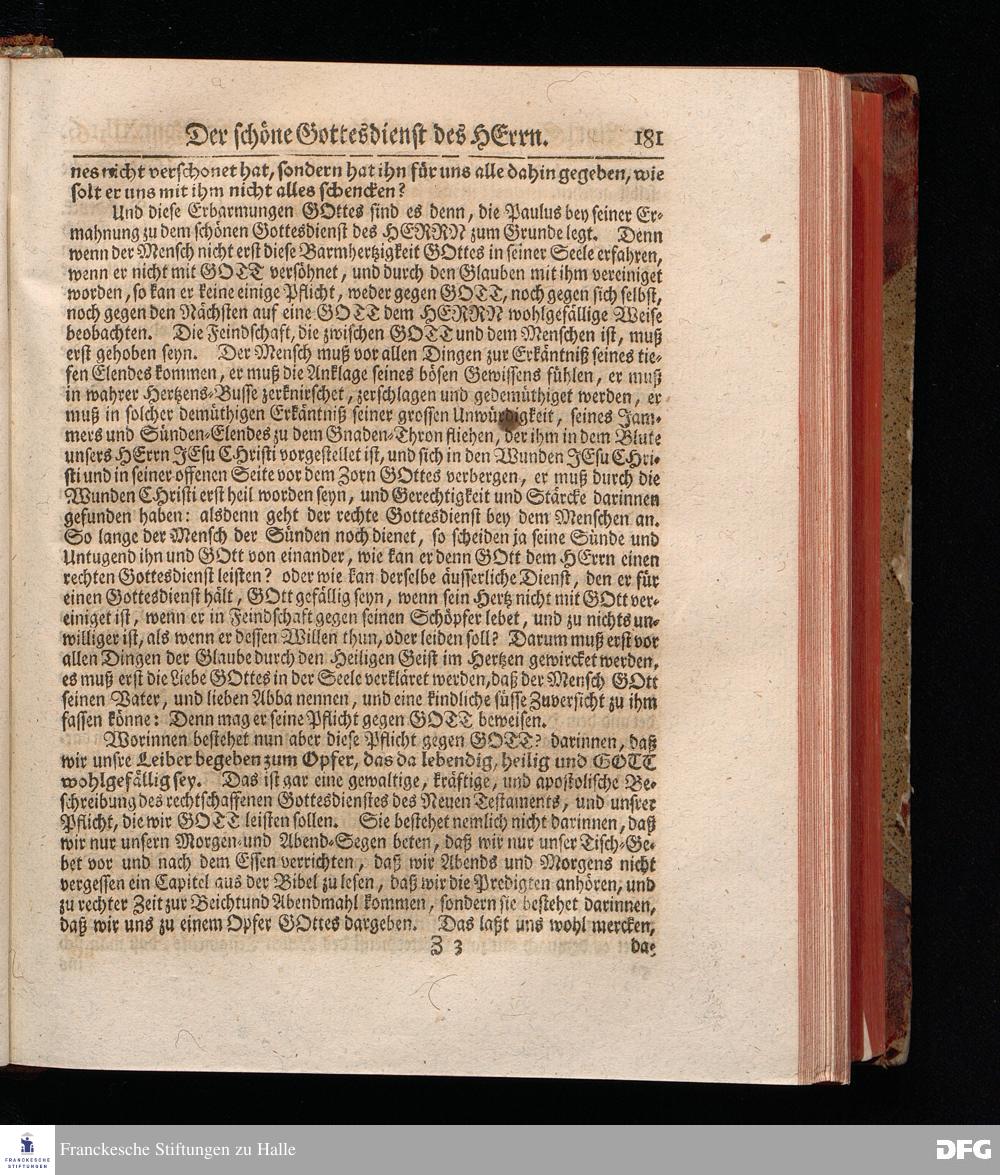 Der schöne Gottesdienst des HErrn. 181
nes nicht verschonet hat, sondern hat ihn für uns alle dahin gegeben, wie
solt er uns mit ihm nicht alles schencken?
Und diese Erbarmungen GOttes sind es denn, die Paulus bey seiner Er-
mahnung zu dem schönen Gottesdienst des HERRN zum Grunde legt. Denn
wenn der Mensch nicht erst diese Barmhertzigkeit GOttes in seiner Seele erfahren,
wenn er nicht mit GOTT versöhnet, und durch den Glauben mit ihm vereiniget
worden, so kan er keine einige Pflicht, weder gegen GOTT, noch gegen sich selbst,
noch gegen den Nächsten auf eine GOTT dem HERRN wohlgefällige Weise
beobachten. Die Feindschaft, die zwischen GOTT und dem Menschen ist, muß
erst gehoben seyn. Der Mensch muß vor allen Dingen zur Erkäntniß seines tie-
fen Elendes kommen, er muß die Anklage seines bösen Gewissens fühlen, er muß
in wahrer Hertzens-Busse zerknirschet, zerschlagen und gedemüthiget werden, er
muß in solcher demüthigen Erkäntniß seiner grossen Unwürdigkeit, seines Jam-
mers und Sünden-Elendes zu dem Gnaden-Thron fliehen, der ihm in dem Blute
unsers HErrn JEsu CHristi vorgestellet ist, und sich in den Wunden JEsu CHri-
sti und in seiner offenen Seite vor dem Zorn GOttes verbergen, er muß durch die
Wunden CHristi erst heil worden seyn, und Gerechtigkeit und Stärcke darinnen
gefunden haben: alsdenn geht der rechte Gottesdienst bey dem Menschen an.
So lange der Mensch der Sünden noch dienet, so scheiden ja seine Sünde und
Untugend ihn und GOtt von einander, wie kan er denn GOtt dem HErrn einen
rechten Gottesdienst leisten? oder wie kan derselbe äusserliche Dienst, den er für
einen Gottesdienst hält, GOtt gefällig seyn, wenn sein Hertz nicht mit GOtt ver-
einiget ist, wenn er in Feindschaft gegen seinen Schöpfer lebet, und zu nichts un-
williger ist, als wenn er dessen Willen thun, oder leiden soll? Darum muß erst vor
allen Dingen der Glaube durch den Heiligen Geist im Hertzen gewircket werden,
es muß erst die Liebe GOttes in der Seele verkläret werden, daß der Mensch GOtt
seinen Vater, und lieben Abba nennen, und eine kindliche süsse Zuversicht zu ihm
fassen könne: Denn mag er seine Pflicht gegen GOTT beweisen.
Worinnen bestehet nun aber diese Pflicht gegen GOTT? darinnen, daß
wir unsre Leiber begeben zum Opfer, das da lebendig, heilig und GOTT
wohlgefällig sey. Das ist gar eine gewaltige, kräftige, und apostolische Be-
schreibung des rechtschaffenen Gottesdienstes des Neuen Testaments, und unsrer
Pflicht, die wir GOTT leisten sollen. Sie bestehet nemlich nicht darinnen, daß
wir nur unsern Morgen- und Abend-Segen beten, daß wir nur unser Tisch-Ge-
bet vor und nach dem Essen verrichten, daß wir Abends und Morgens nicht
vergessen ein Capitel aus der Bibel zu lesen, daß wir die Predigten anhören, und
zu rechter Zeit zur Beicht und Abendmahl kommen, sondern sie bestehet darinnen,
daß wir uns zu einem Opfer GOttes dargeben. Das laßt uns wohl mercken,
Z 3 da-
FRANCKESCHE
STIFTUNGEN
Franckesche Stiftungen zu Halle
DFG